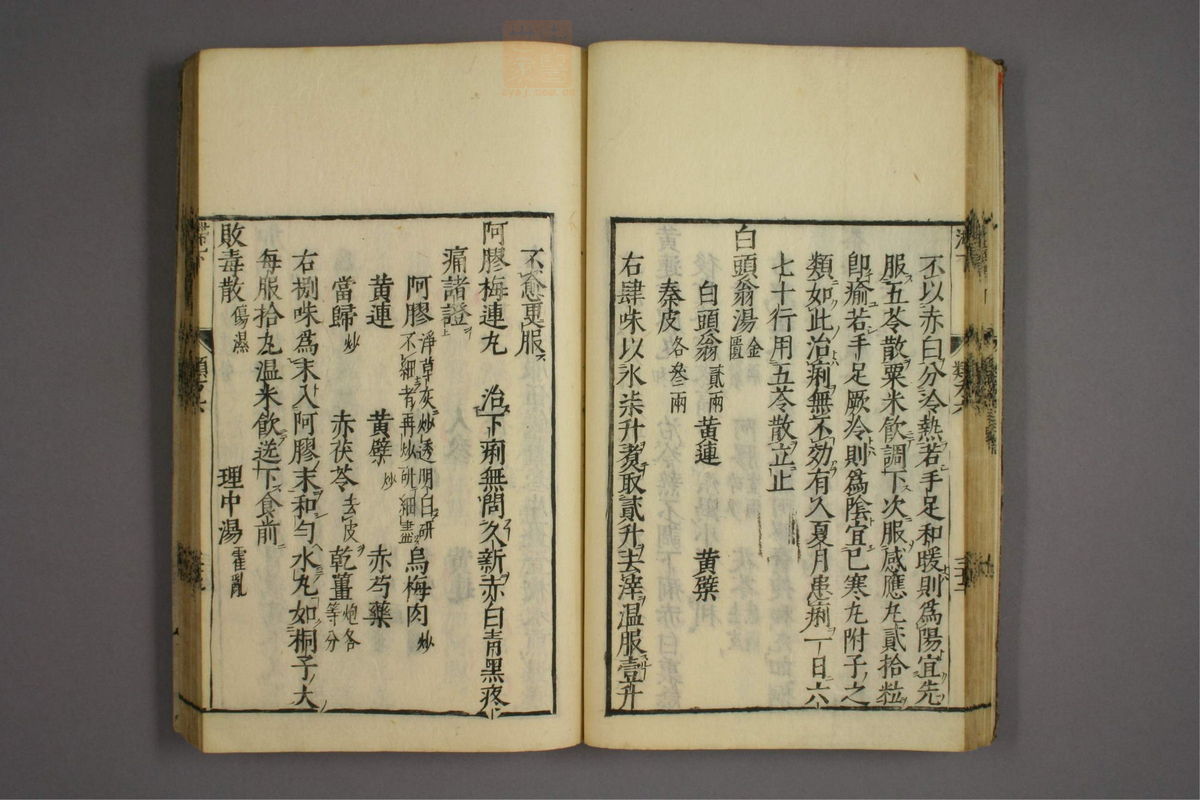 不以赤白分冷熱若手足和暖則爲陽宜先
服五苓散粟米飲調下次服感應丸貳拾粒
卽瘉若手足厥冷則爲陰宜已寒丸附子之
類如此治痢無不効有人夏月患痢一日六
七十行用五苓散立止
白頭翁湯 金匱
白頭翁 貳兩 黃連 黃蘗
秦皮 各叄兩
右肆味以水柒升煑取貳升去滓温服壹升
不愈更服
阿膠梅連丸 治下痢無問久新赤白青黑疼
痛諸證
阿膠 淨草灰炒透明白研不細者再炒研細盡 烏梅肉 炒
黃連 黃蘗 炒 赤芍藥
當歸 炒 赤茯苓 去皮 乾薑 炮各等分
右捌味爲末入阿膠末和勻水丸如桐子大
每服拾丸温米飲送下食前
敗毒散 傷濕 理中湯 霍亂